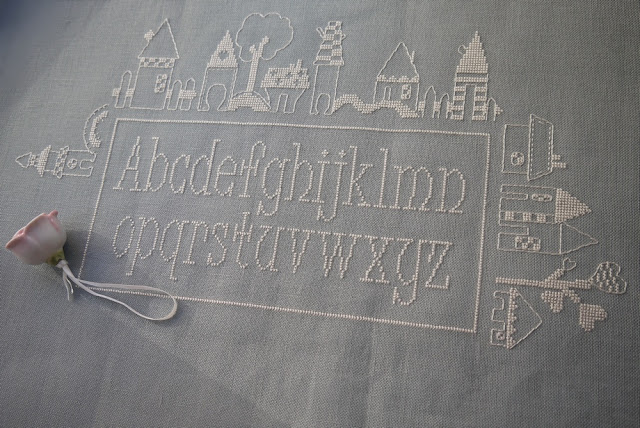 Abcdefghijklmn
opqrstuvwxyz